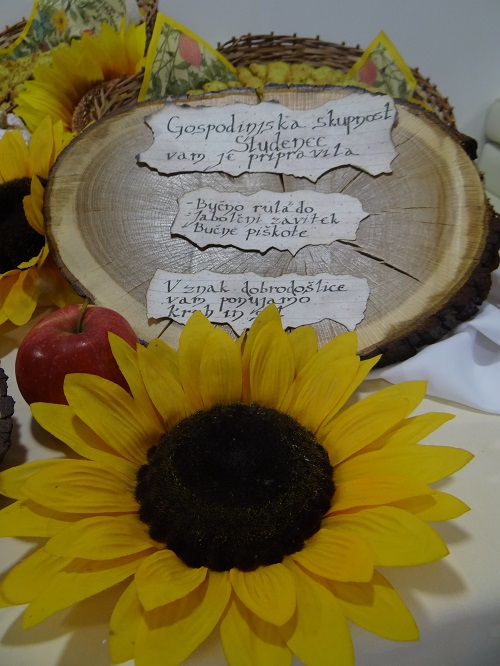 Gospodinjska skupnost
Studenec
vam je pripravila
- Bučno rulado
- Jabolčni zavitek
- Bučne piškote
V znak dobrodošlice
vam ponujamo
kruh in sol